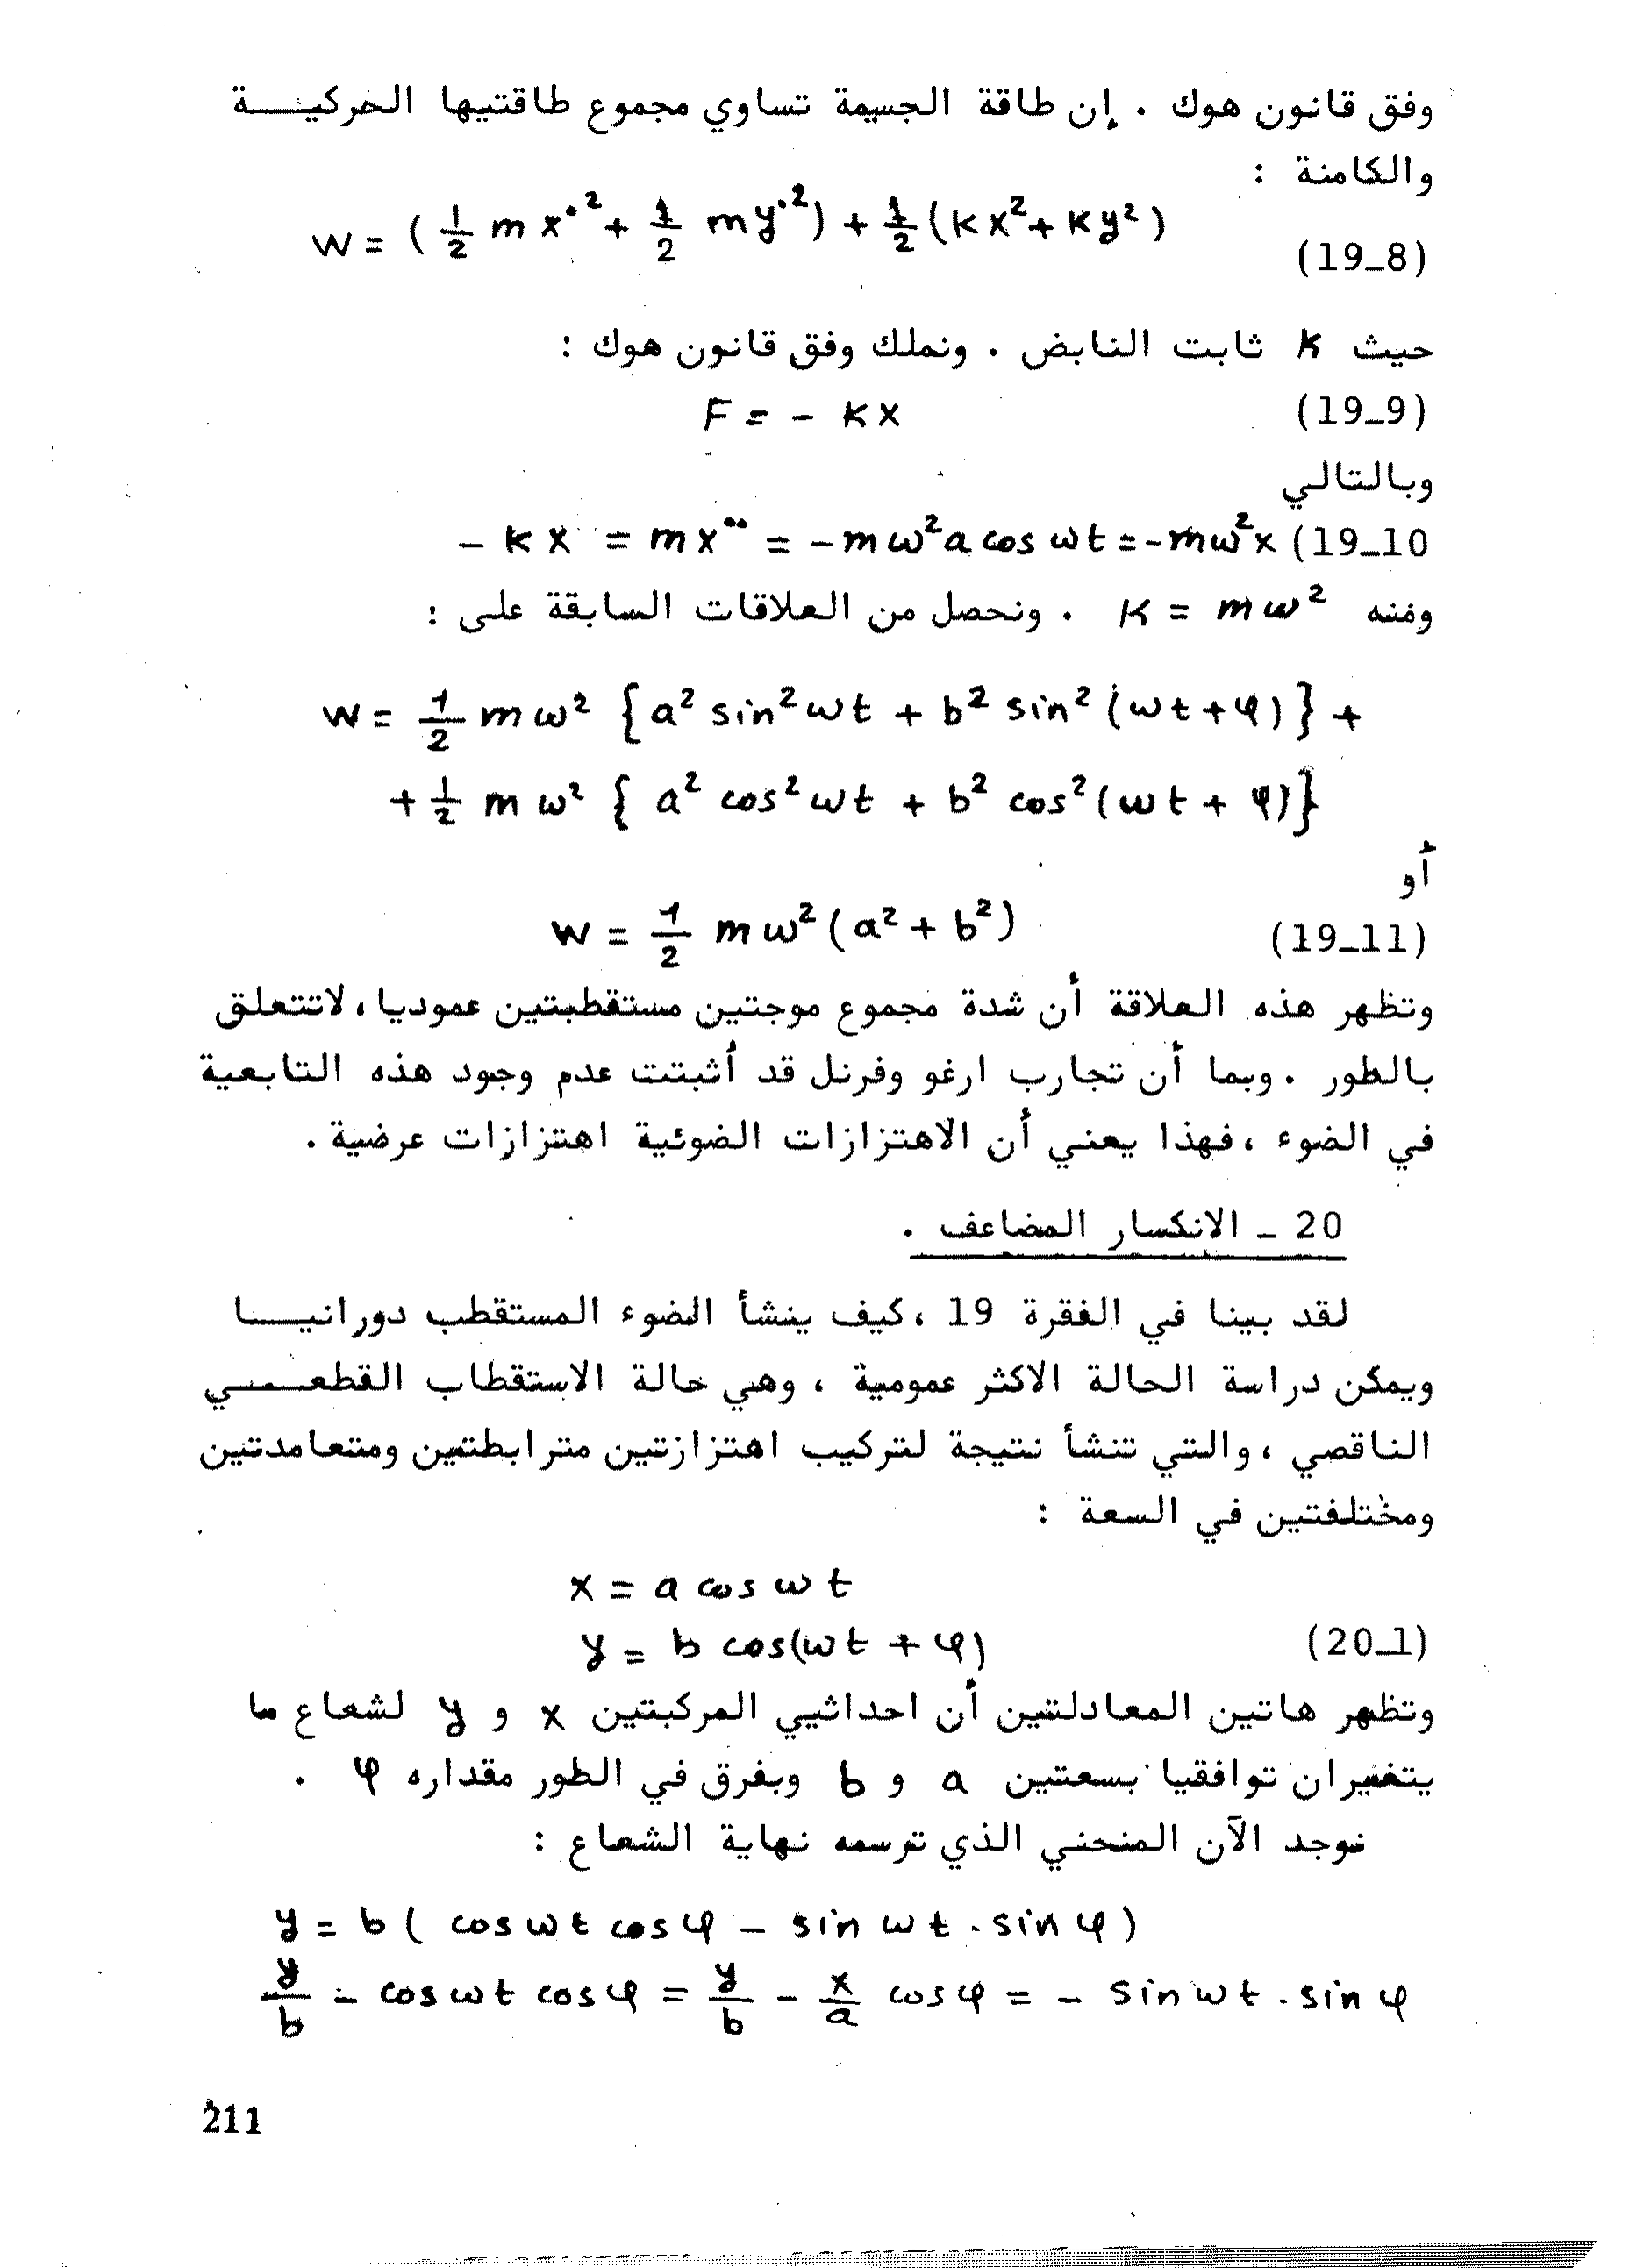 وفق قانون هوك . إن طاقة الجسيمة تساوي مجموع طاقتيها الحركيـــة
والكامنة :
W = ( 1/2 m x˙² + 1/2 m y˙² ) + 1/2 ( K x² + K y² )
(19_8)
حيث K ثابت النابض . ونملك وفق قانون هوك :
F = - K X (19_9)
وبالتالي
- K X = m X¨ = - m ω² a cos ωt = - m ω² x (19_10
ومنه K = m ω² . ونحصل من العلاقات السابقة على :
W = 1/2 m ω² { a² sin² ωt + b² sin² (ωt + φ) } +
+ 1/2 m ω² { a² cos² ωt + b² cos² (ωt + φ) }
أو
W = 1/2 m ω² ( a² + b² ) (19_11)
وتظهر هذه العلاقة أن شدة مجموع موجتين مستقطبتين عموديا ، لاتتعلق
بالطور . وبما أن تجارب ارغو وفرنل قد أثبتت عدم وجود هذه التابعية
في الضوء ، فهذا يعني أن الاهتزازات الضوئية اهتزازات عرضية .
20 _ الانكسار المضاعف .
لقد بينا في الفقرة 19 ، كيف ينشأ الضوء المستقطب دورانيـــا
ويمكن دراسة الحالة الاكثر عمومية ، وهي حالة الاستقطاب القطعـــي
الناقصي ، والتي تنشأ نتيجة لتركيب اهتزازتين مترابطتين ومتعامدتين
ومختلفتين في السعة :
x = a cos ωt
y = b cos(ωt + φ) (20_1)
وتظهر هاتين المعادلتين أن احداثيي المركبتين x و y لشعاع ما
يتغيران توافقيا بسعتين a و b وبفرق في الطور مقداره φ .
نوجد الآن المنحني الذي ترسمه نهاية الشعاع :
y = b ( cos ωt cos φ - sin ωt . sin φ )
y/b - cos ωt cos φ = y/b - x/a cos φ = - sin ωt . sin φ
211